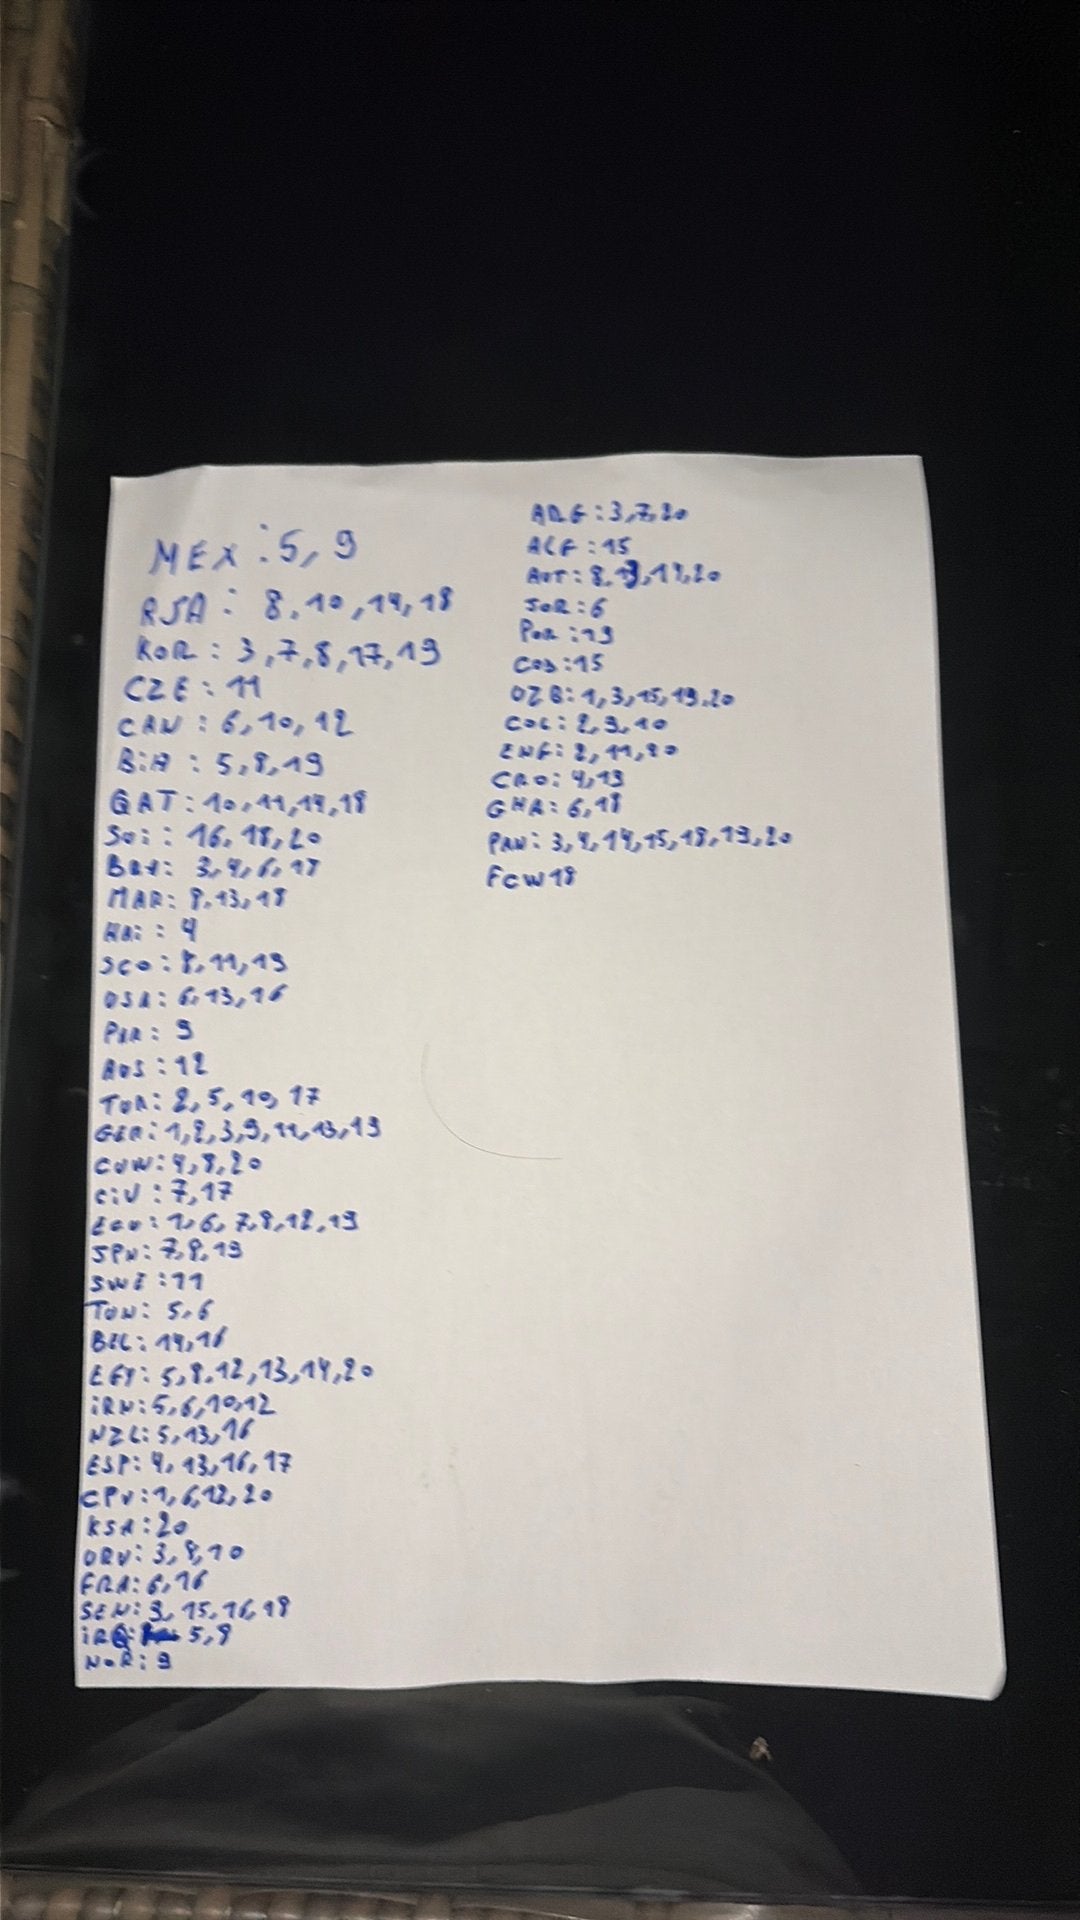 MEX: 5, 9
RSA: 8, 10, 14, 18
KOR: 3, 7, 8, 17, 19
CZE: 11
CAN: 6, 10, 12
BiH: 5, 8, 19
QAT: 10, 11, 14, 18
SUi: 16, 18, 20
BRA: 3, 4, 6, 17
MAR: 8, 13, 18
HAi: 4
SCO: 8, 11, 19
USA: 6, 13, 16
PAR: 9
AUS: 12
TUR: 2, 5, 10, 17
GER: 1, 2, 3, 9, 11, 13, 19
CUW: 4, 8, 20
CiV: 7, 17
ECU: 1, 6, 7, 8, 12, 19
JPN: 7, 8, 19
SWE: 11
TUN: 5, 6
BEL: 14, 16
EGY: 5, 8, 12, 13, 14, 20
iRN: 5, 6, 10, 12
NZL: 5, 13, 16
ESP: 4, 13, 16, 17
CPV: 1, 6, 12, 20
KSA: 20
URU: 3, 8, 10
FRA: 6, 16
SEN: 3, 15, 16, 18
iRQ: 5, 8
NOR: 9
ARG: 3, 7, 20
ALG: 15
AUT: 8, 20
JOR: 6
POR: 19
COD: 15
UZB: 1, 3, 15, 19, 20
COL: 2, 9, 10
ENG: 2, 11, 20
CRO: 4, 19
GHA: 6, 18
PAN: 3, 4, 14, 15, 18, 19, 20
FCW 18